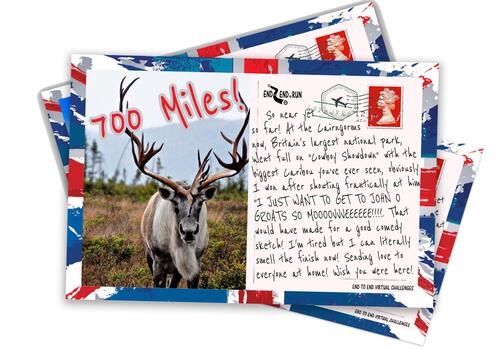 700 Miles!
END 2 END.RUN
So near yet
so far! At the Cairngorms
now, Britain's largest national park,
Went full on "Cowboy Showdown" with the
biggest Caribou you've ever seen, obviously
I won after shouting frantically at him
"I JUST WANT TO GET TO JOHN O
GROATS SO MOOOOVWEEEEEE!!!!. That
would have made for a good comedy
sketch! I'm tired but I can literally
smell the finish now! Sending love to
everyone at home! Wish you were here!
END TO END VIRTUAL CHALLENGES
END TO END VIRTUAL CHALLENGES